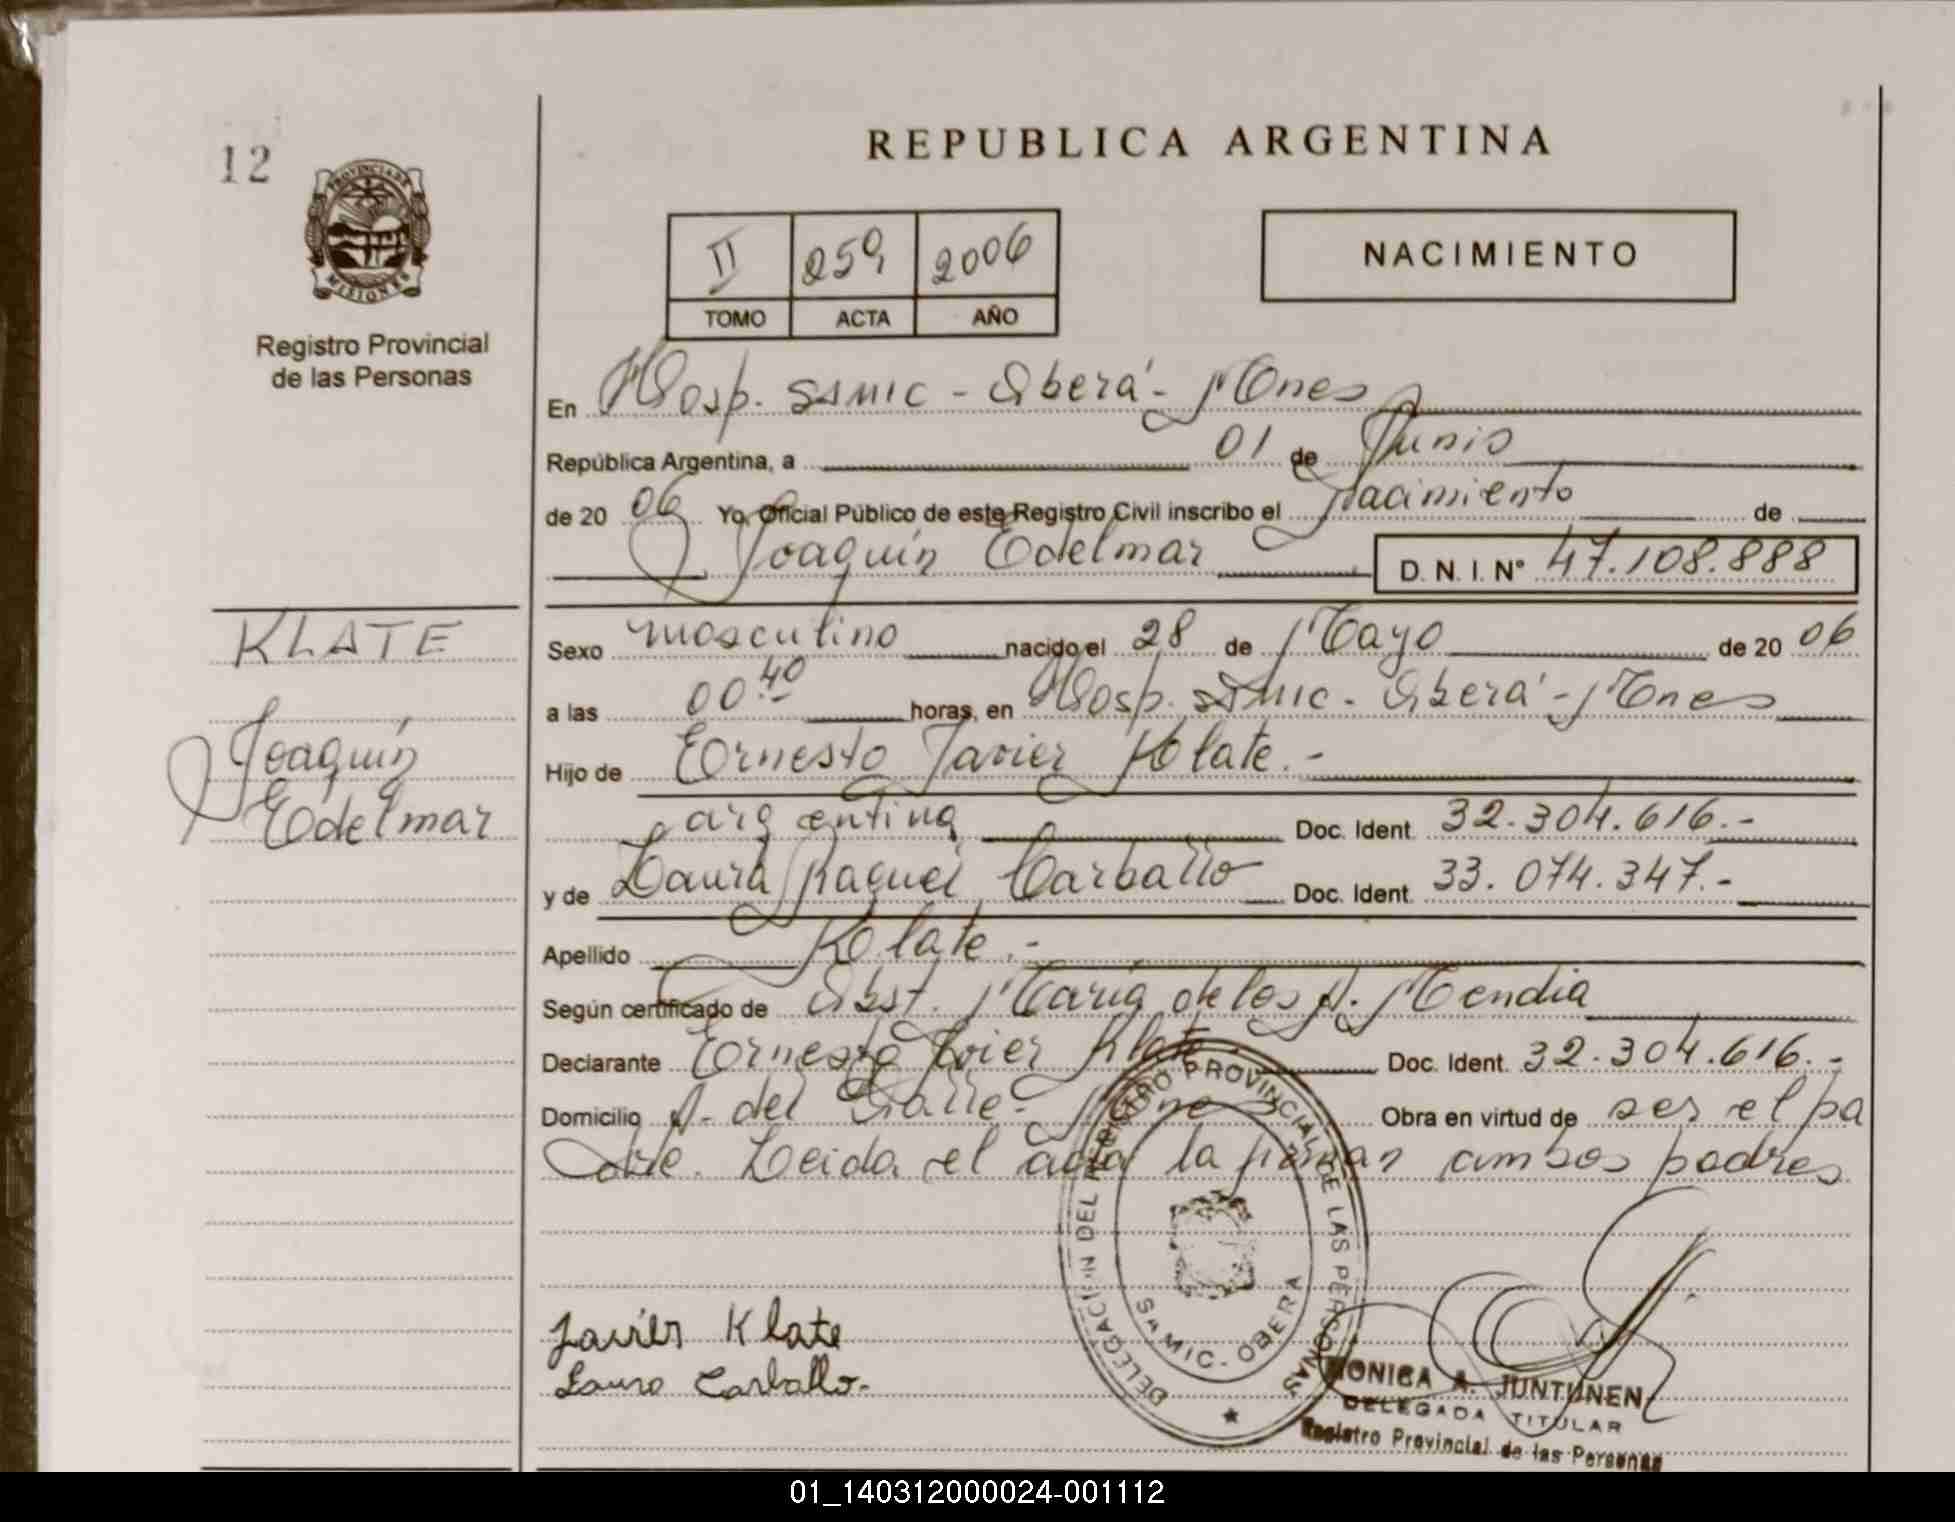 12
PROVINCIA DE
MISIONES
Registro Provincial
de las Personas
REPUBLICA ARGENTINA
II 259 2006
TOMO ACTA AÑO
NACIMIENTO
En Hosp. SAMIC - Oberá - Mnes
República Argentina, a 01 de Junio
de 20 06 Yo, Oficial Público de este Registro Civil inscribo el Nacimiento de
Joaquín Edelmar D. N. I. N° 47.108.888
KLATE
Joaquín
Edelmar
Sexo masculino nacido el 28 de Mayo de 20 06
a las 00 40 horas, en Hosp. SAMIC - Oberá - Mnes
Hijo de Ernesto Javier Klate.-
argentina Doc. Ident. 32.304.616.-
y de Laura Raquel Carballo Doc. Ident. 33.074.347.-
Apellido Klate.-
Según certificado de Obst. María de los A. Mendia
Declarante Ernesto Javier Klate Doc. Ident. 32.304.616.-
Domicilio A. del Valle - Mnes Obra en virtud de ser el pa
dre. Leida el acta la firman ambos padres
DELEGACION DEL REGISTRO PROVINCIAL DE LAS PERSONAS
SAMIC - OBERA
Javier Klate
Laura Carballo.
MONICA A. JUNTUNEN
DELEGADA TITULAR
Registro Provincial de las Personas
01_140312000024-001112